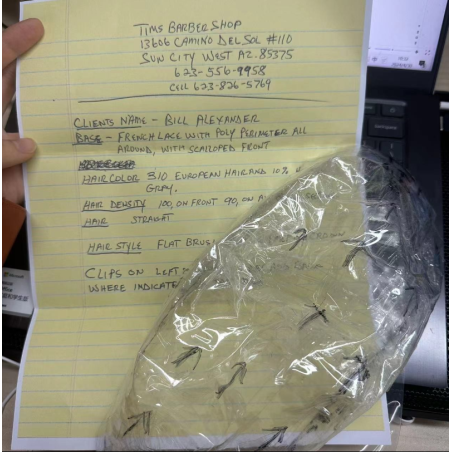 TIMS BARBER SHOP
13606 CAMINO DEL SOL #110
SUN CITY WEST AZ. 85375
623-556-9958
CELL 623-826-5769
CLIENTS NAME - BILL ALEXANDER
BASE - FRENCH LACE WITH POLY PERIMETER ALL
AROUND, WITH SCALLOPED FRONT
HAIR COLOR 310 EUROPEAN HAIR AND 10%
GRAY.
HAIR DENSITY 100, ON FRONT 90, ON
HAIR STRAIGHT
HAIR STYLE FLAT BRUSH
CLIPS ON LEFT
WHERE INDICATE